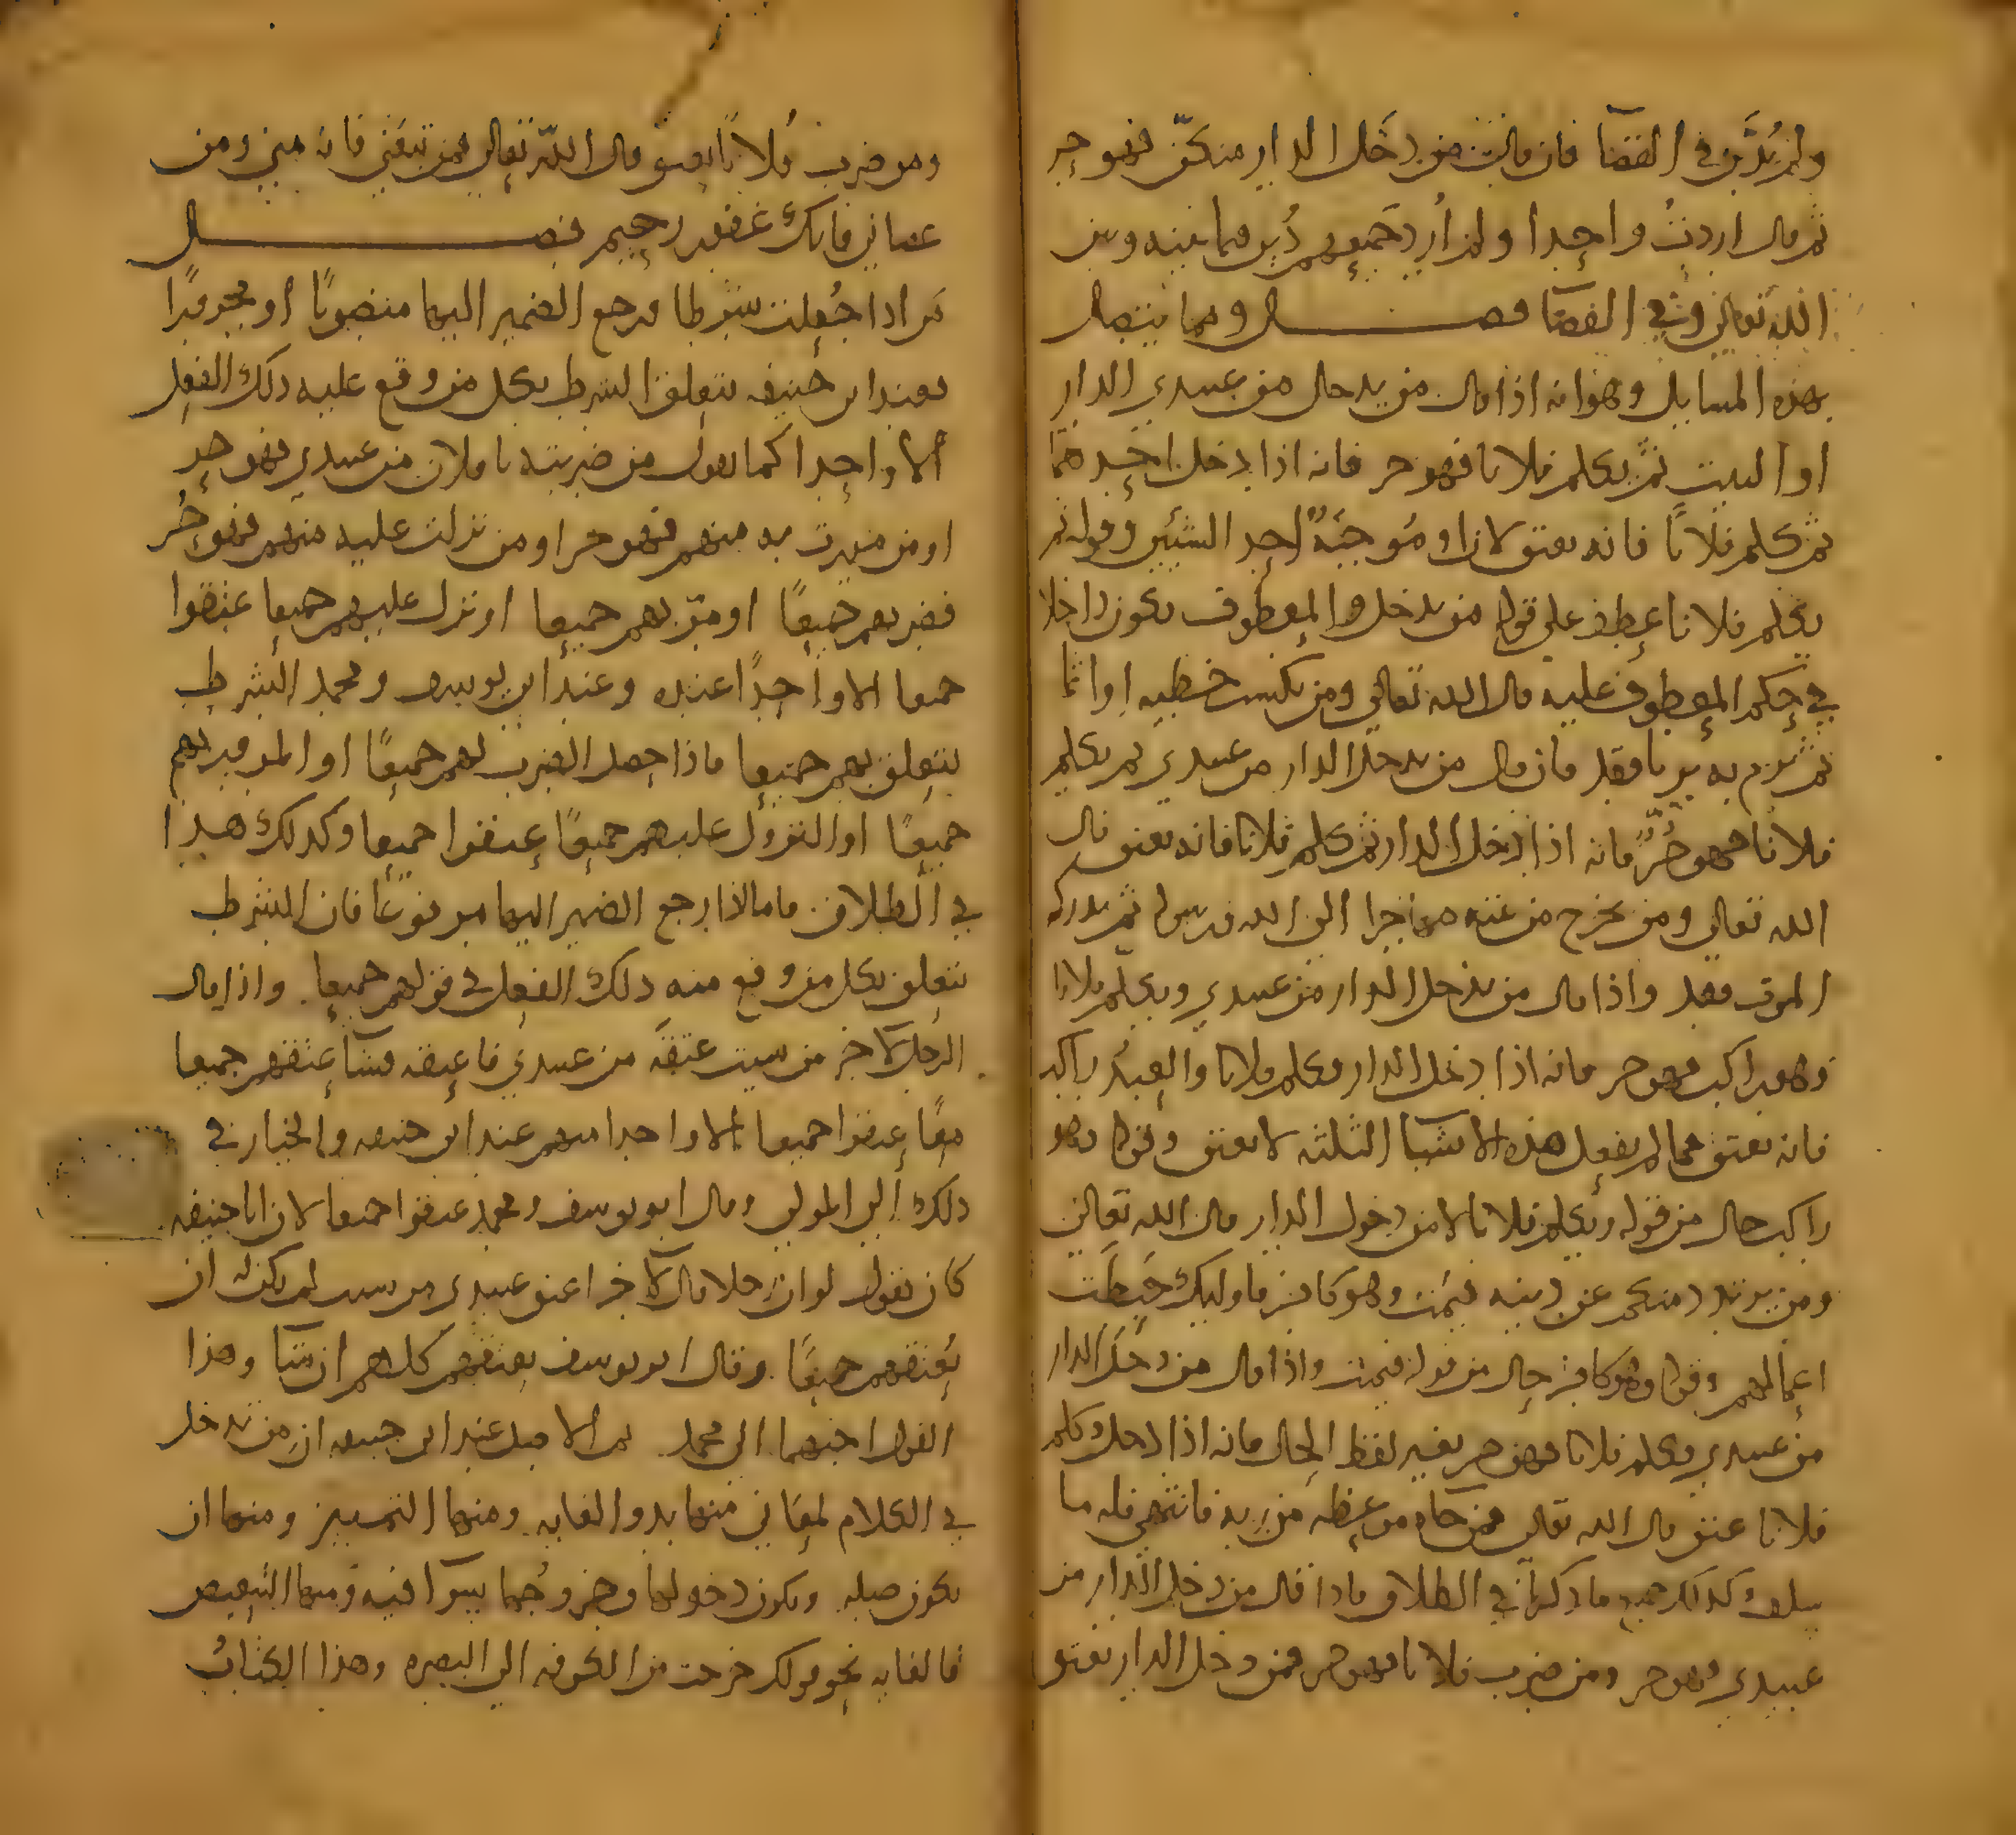 ولم يُدَيَّن في القضآ فان قالت من دخَل الدار منكنّ فهو حر
ثم قال اردتُ واحدا ولم اُرِد جَميعهم دُيّن فيما بينه وبين
الله تعالى وفي القضآ فصــل ومما يتصل
بهذه المسايل وهو انه اذا قال من يدخل من عبيدي الدار
او البيت ثم يكلم فلانا فهو حر فانه اذا دخل احدهما
ثم كلم فلانًا فانه يعتق لان او مُوجبَهُ احد الشيئين وقوله ثم
يكلم فلانا عطف على قوله من يدخل والمعطوف يكون داخلا
في حكم المعطوف عليه قال الله تعالى ومن يكسب خطيه او اثما
ثم يرم به بريا فقد فان قال من يدخل الدار من عبيدي ثم يكلم
فلانا فهو حُرٌّ فانه اذا دخل الدار ثم كلم فلانا فانه يعتق قال
الله تعالى ومن يخرج من بيته مهاجرا الى الله ورسوله ثم يدركه
الموت فقد واذا قال من يدخل الدار من عبيدي ويكلم فلانا
وهو راكب فهو حر فانه اذا دخل الدار وكلم فلانا والعبدُ راكب
فانه يعتق فما لم يفعل هذه الاشيا الثلثه لا يعتق وقوله وهو
راكب حال من قوله ويكلم فلانا لا من دخول الدار قال الله تعالى
ومن يرتدد منكم عن دينه فيَمُت وهو كافر فاوليك حَبِطَت
اعمالهم وقوله وهو كافر حال من قوله فيمت واذا قال من دخَل الدار
من عبيدي وكلم فلانا فهو حر بغير لفظ الحال فانه اذا دخل وكلم
فلانا عتق قال الله تعالى فمن جاه موعظه من ربه فانتهى فله ما
سلف وكذلك جميع ما ذكرنا في الطلاق فاذا قال من دخل الدار من
عبيدي فهو حر ومن ضرب فلانا فهو حر فمن دخل الدار يعتق
ومن ضرب فلانًا يعتق قال الله تعالى فمن تبعَني فانه مني ومن
عصاني فانك غفور رحيم فصــل
مَن اذا جُعلت شرطا فرجع الضمير اليها منصوبًا او مجرورًا
فعند ابي حنيفه يتعلق الشرط بكل من وقع عليه ذلك الفعل
الا واحدا كما يقول من ضربته يا فلان من عبيدي فهو حر
او من مررت به منهم فهو حر او من نزلت عليه منهم فهو حُر
فضربهم جميعًا او مرّ بهم جميعا او نزل عليهم جميعا عتقوا
جميعا الا واحدًا عنده وعند ابي يوسف ومحمد الشرط
يتعلق بهم جميعا فاذا حصل الضرب لهم جميعًا او المرور بهم
جميعًا او النزول عليهم جميعًا عتقوا جميعا وكذلك هذا
في الطلاق فاما اذا رجع الضمير اليها مرفوعًا فان الشرط
يتعلق بكل من وقع منه ذلك الفعل في قولهم جميعا . واذا قال
الرجل لآخر من شيت عتقَه من عبيدي فاعتقه فشآ عتقهم جميعا
معًا عتقوا جميعا الا واحدا منهم عند ابي حنيفه والخيار في
ذلك الى المولى وقال ابو يوسف ومحمد عتقوا جميعا لان ابا حنيفه
كان يقول لو ان رجلا قال لآخر اعتق عبيدي من شيت لم يكن له ان
يُعتقهم جميعًا . وقال ابو يوسف يعتقهم كلهم ان شآ وهذا
القول احبهما الى محمد . ثم الاصل عند ابي حنيفه ان مِن تدخل
في الكلام لمعَاني منها بدو الغايه . ومنها التمييز ومنها ان
يكون صله ويكون دخولها وخروجُها سوآ فيه ومنها التبعيض
فالغايه نحو قولك خرجت من الكوفه الى البصره وهذا الكتابُ